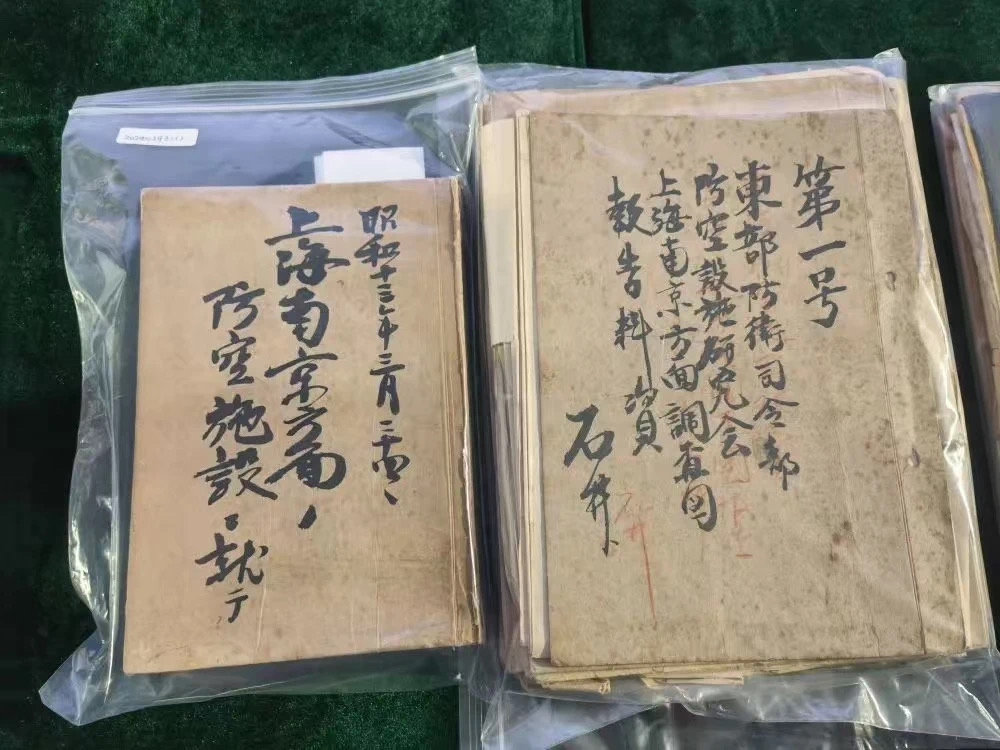 昭和十三年三月二十四、
上海南京方面ノ
防空施設ニ就テ
第一号
東部防衛司令部
防空設施研究会
上海南京方面調査団
報告料資
石井